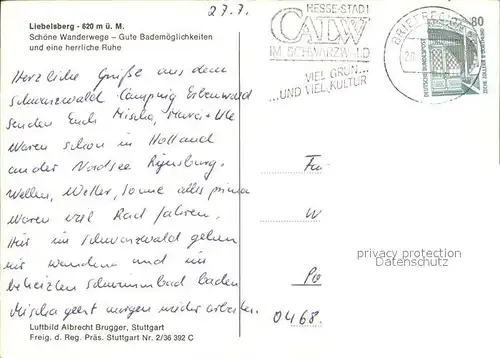 27.7.
Liebelsberg - 620 m ü. M.
Schöne Wanderwege – Gute Bademöglichkeiten
und eine herrliche Ruhe
HESSE-STADT
CALW
IM SCHWARZWALD
VIEL GRÜN...
...UND VIEL KULTUR
80
DEUTSCHE BUNDESPOST
ZECHE ZOLLERN II DORTMUND
Herzliche Grüße aus dem
Schwarzwald Camping Erbenwald
senden Euch Mischa, Mara + Ute
Waren schon in Holland
an der Nordsee
Wellen, Wetter, Sonne alles prima
Waren viel Rad fahren.
Hier im Schwarzwald gehen
wir wandern und im
beheizten Schwimmbad baden
Mischa geht morgen wieder arbeiten.
Fa
W
Po
0468
privacy protection
Datenschutz
Luftbild Albrecht Brugger, Stuttgart
Freig. d. Reg. Präs. Stuttgart Nr. 2/36 392 C